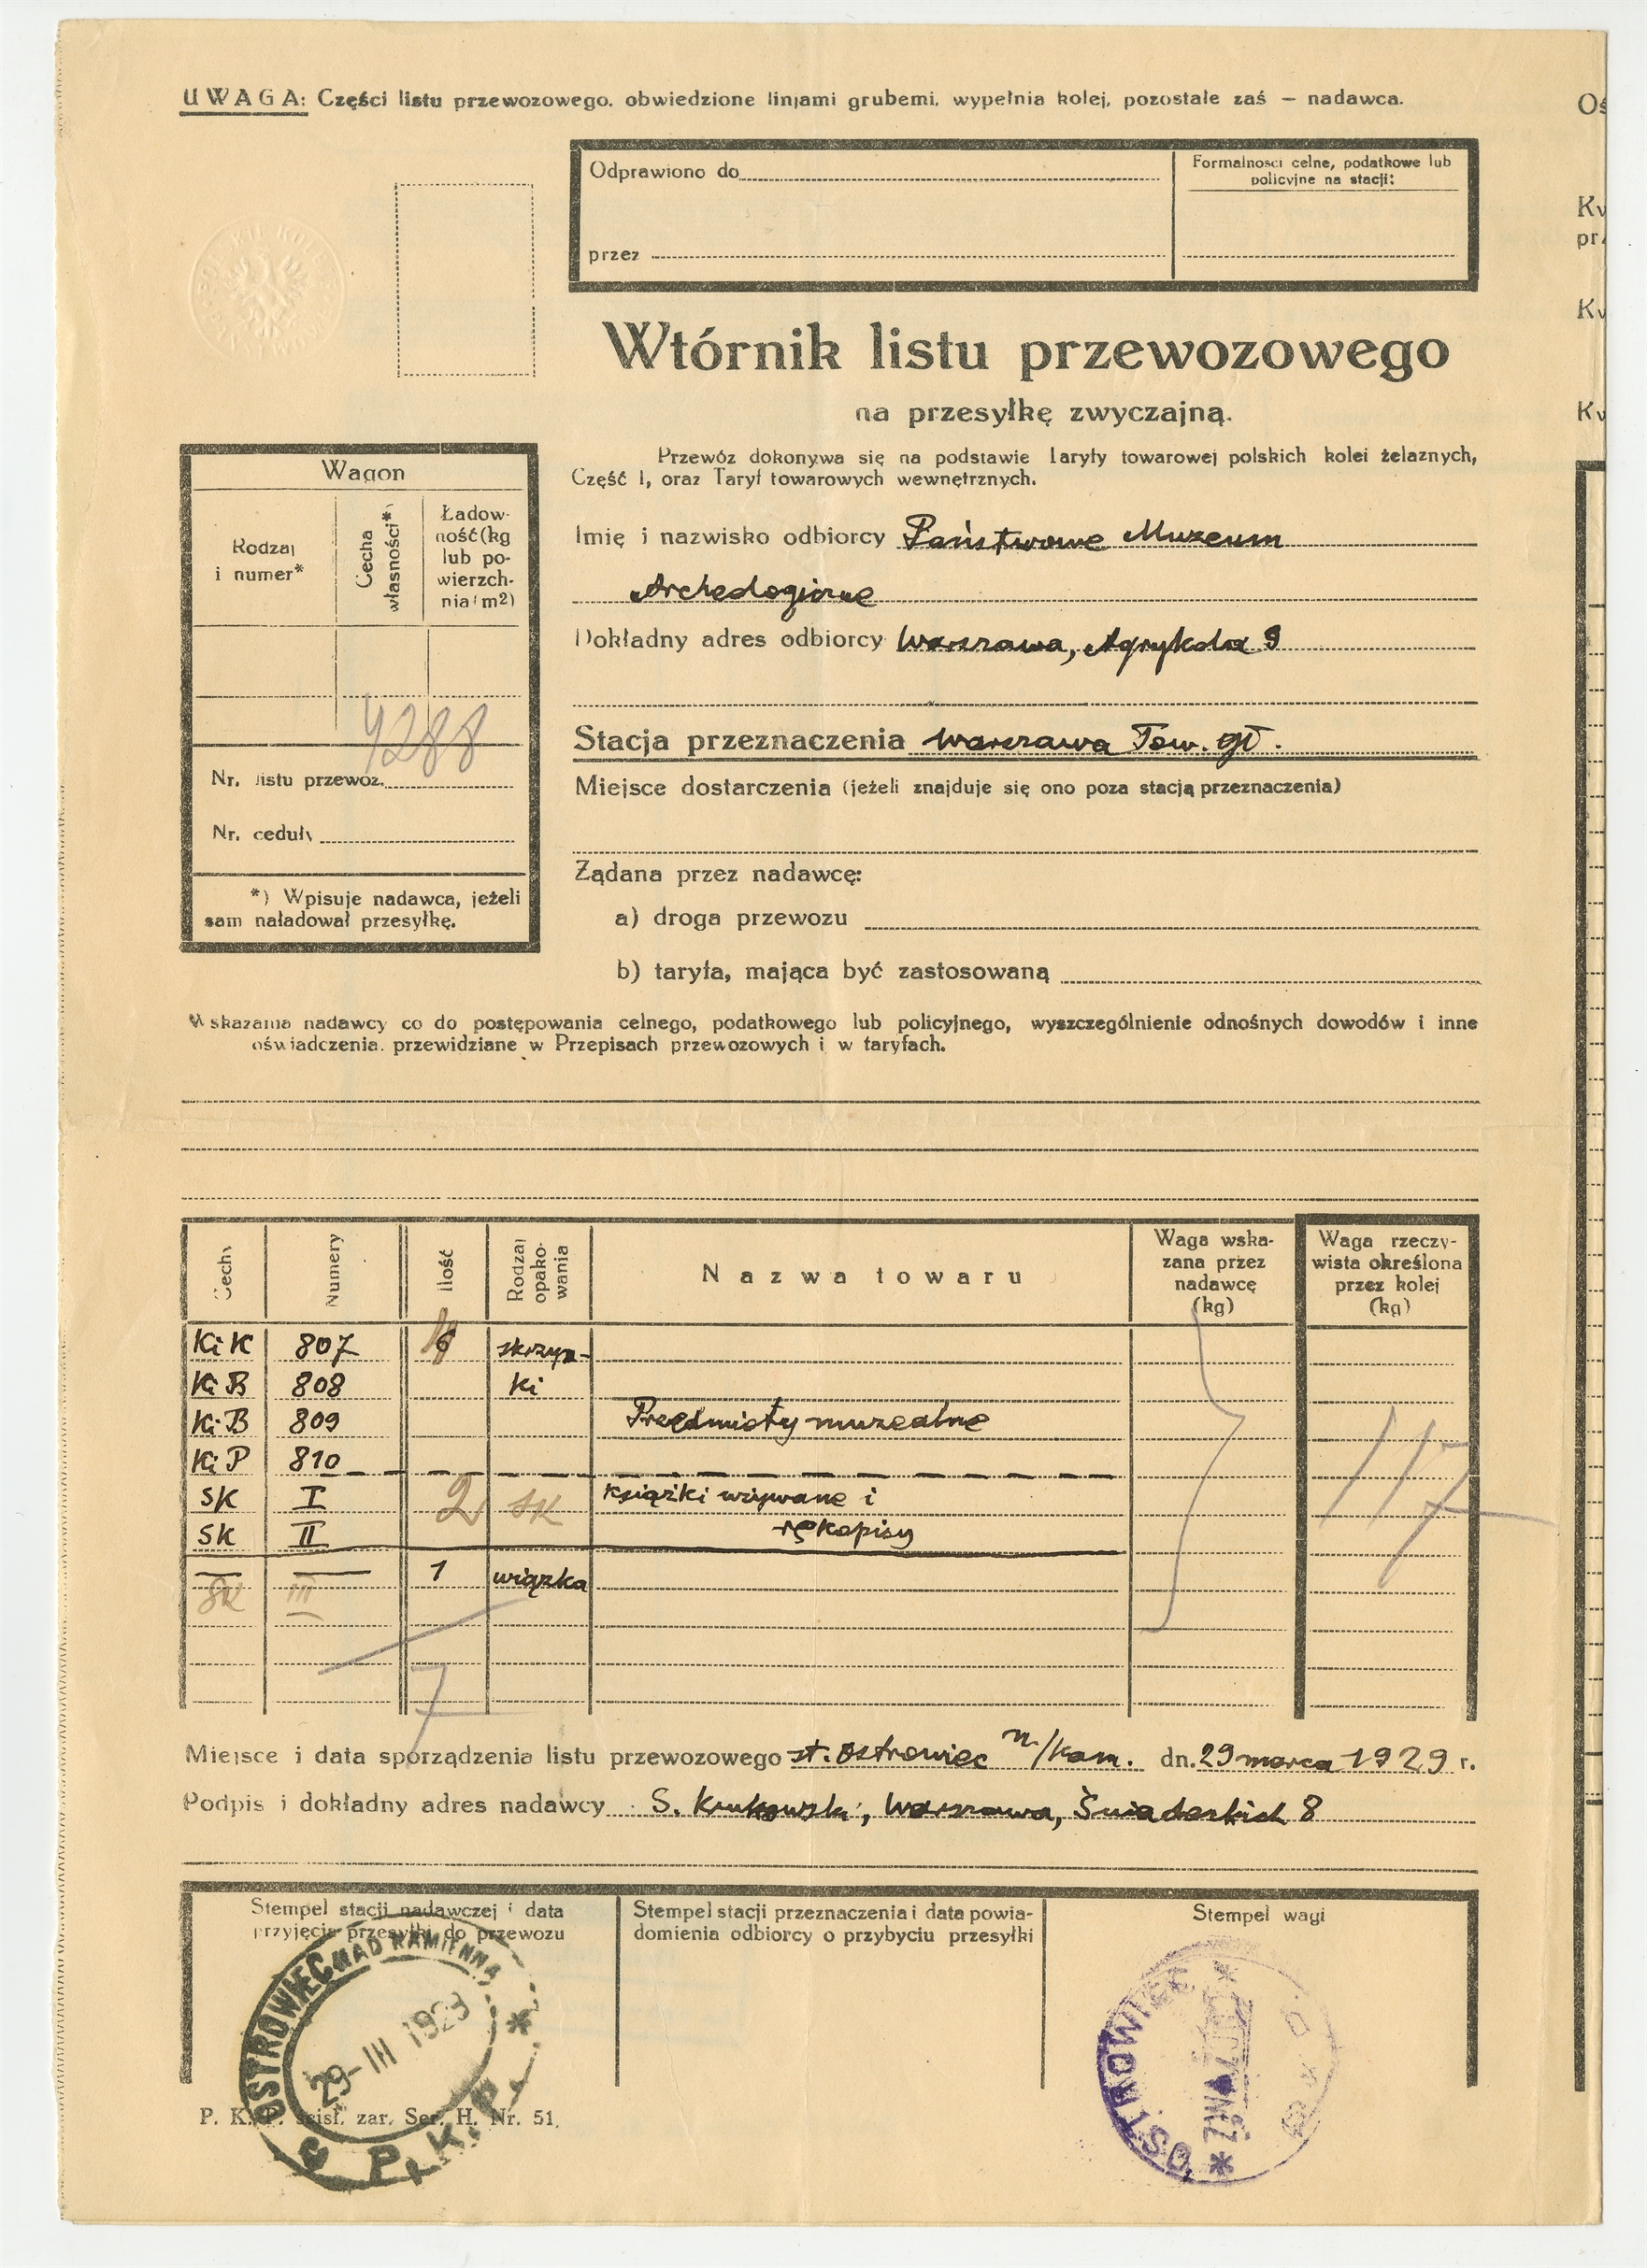 UWAGA: Części listu przewozowego, obwiedzione linjami grubemi, wypełnia kolej, pozostałe zaś – nadawca.
Odprawiono do
przez
Formalności celne, podatkowe lub
policyjne na stacji:
Wtórnik listu przewozowego
na przesyłkę zwyczajną.
Przewóz dokonywa się na podstawie Taryfy towarowej polskich kolei żelaznych,
Część I, oraz Taryf towarowych wewnętrznych.
Wagon
Rodzaj
i numer*
Cecha
własności*)
Ładow-
ność (kg
lub po-
wierzch-
nia (m2)
4288
Nr. listu przewoz.
Nr. ceduły
*) Wpisuje nadawca, jeżeli
sam naładował przesyłkę.
Imię i nazwisko odbiorcy Państwowe Muzeum
Archeologiczne
Dokładny adres odbiorcy Warszawa, Agrykola 9
Stacja przeznaczenia Warszawa Tow. gł.
Miejsce dostarczenia (jeżeli znajduje się ono poza stacją przeznaczenia)
Żądana przez nadawcę:
a) droga przewozu
b) taryfa, mająca być zastosowaną
Wskazania nadawcy co do postępowania celnego, podatkowego lub policyjnego, wyszczególnienie odnośnych dowodów i inne
oświadczenia, przewidziane w Przepisach przewozowych i w taryfach.
Cechy
Numery
Ilość
Rodzaj
opako-
wania
Nazwa towaru
Waga wska-
zana przez
nadawcę
(kg)
Waga rzeczy-
wista określona
przez kolej
(kg)
KiK 807 skrzyn-
KiB 808 ki
KiB 809 Przedmioty muzealne
KiP 810
SK I 2 SK książki używane i
SK II rękopisy
117
— — 1 wiązka
SK III
7
Miejsce i data sporządzenia listu przewozowego st. Ostrowiec n./Kam. dn. 29 marca 1929 r.
Podpis i dokładny adres nadawcy S. Krukowski, Warszawa, Śniadeckich 8
Stempel stacji nadawczej i data
przyjęcia przesyłki do przewozu
Stempel stacji przeznaczenia i data powia-
domienia odbiorcy o przybyciu przesyłki
Stempel wagi
OSTROWIEC NAD KAMIENNĄ
29-III 1929
P.K.P.
OSTROWIEC
P. K. P. zar. Ser. H. Nr. 51.